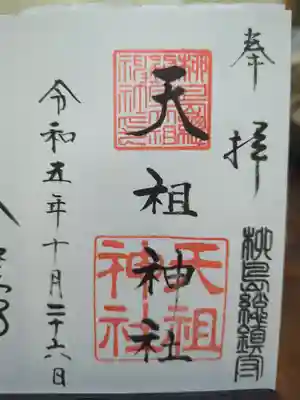 奉拝
柳島総鎮守
天祖神社
天祖
神社
令和五年十月二十六日